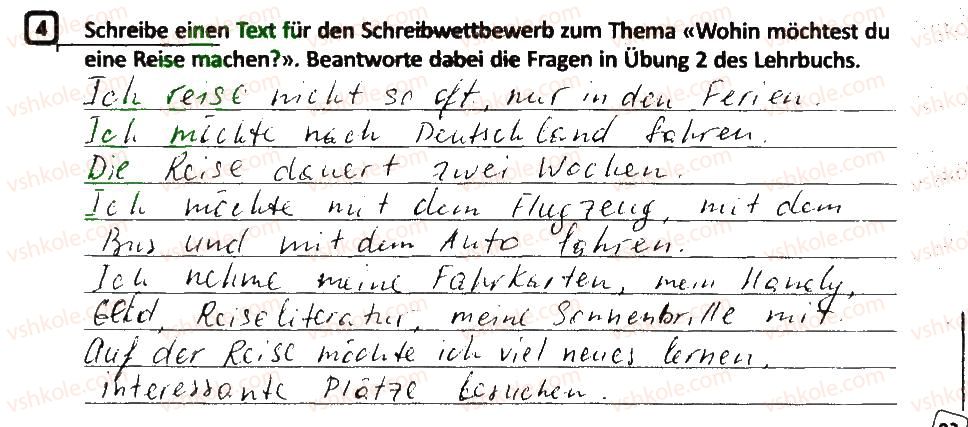 4 Schreibe einen Text für den Schreibwettbewerb zum Thema «Wohin möchtest du
eine Reise machen?». Beantworte dabei die Fragen in Übung 2 des Lehrbuchs.
Ich reise nicht so oft, nur in den Ferien.
Ich möchte nach Deutschland fahren.
Die Reise dauert zwei Wochen.
Ich möchte mit dem Flugzeug, mit dem
Bus und mit dem Auto fahren.
Ich nehme meine Fahrkarten, mein Handy,
Geld, Reiseliteratur, meine Sonnenbrille mit
Auf der Reise möchte ich viel neues lernen,
interessante Plätze besuchen.